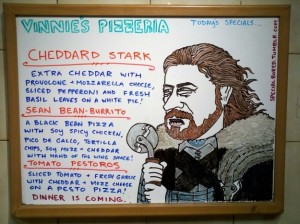 VINNIE'S PIZZERIA
TODAY'S SPECIALS...
CHEDDARD STARK
EXTRA CHEDDAR WITH
PROVOLONE + MOZZARELLA CHEESE,
SLICED PEPPERONI AND FRESH
BASIL LEAVES ON A WHITE PIE!
SEAN BEAN-BURRITO
A BLACK BEAN PIZZA
WITH SOY SPICY CHICKEN,
PICO DE GALLO, TORTILLA
CHIPS, SOY MOZZ + CHEDDAR
WITH HAND OF THE WING SAUCE!
TOMATO PESTOROS
SLICED TOMATO + FRESH GARLIC
WITH CHEDDAR + MOZZ CHEESE
ON A PESTO PIZZA!
DINNER IS COMING.
SPECIALBOARD.TUMBLR.COM